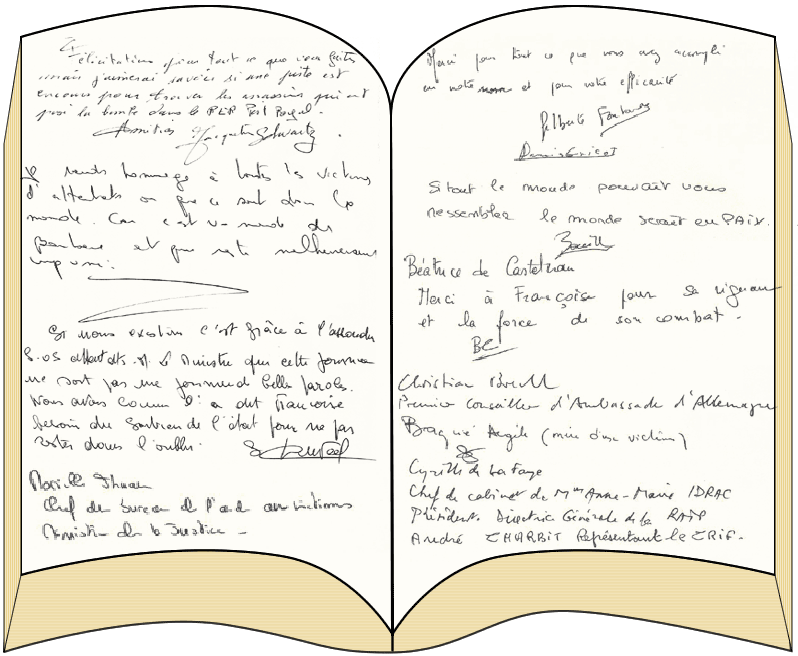 Félicitations pour tout ce que vous faites
mais j'aimerai savoir si une piste est
encours pour trouver les assassins qui ont
posé la bombe dans le RER Port Royal.
Amitiés Jacqueline Schwartz.
Je rends hommage à toutes les victimes
d'attentats où que ce soit dans le
monde. Car c'est un monde de
et que reste malheureusement
impuni.
Si nous existons c'est grâce à l'association
S.OS attentats. Mr le Ministre que cette journée
ne soit pas une journée de belles paroles.
Nous avons comme l'a dit Françoise
besoin du soutien de l'état pour ne pas
rester dans l'oubli.
Chef du bureau de l'aide aux victimes
Ministère de la Justice -
Merci pour tout ce que vous avez accompli
en notre nom et pour votre efficacité
Si tout le monde pouvait vous
ressembler le monde serait en PAIX.
Béatrice de Castelnau
Merci à Françoise pour sa vigueur
et la force de son combat.
BC
Christian
Premier Conseiller d'Ambassade d'Allemagne
Angèle (mère d'une victime)
Cyrille de La Faye
Chef de cabinet de Mme Anne-Marie IDRAC
Président. Directrice Générale de la RATP
André CHARBIT Représentant le CRIF.